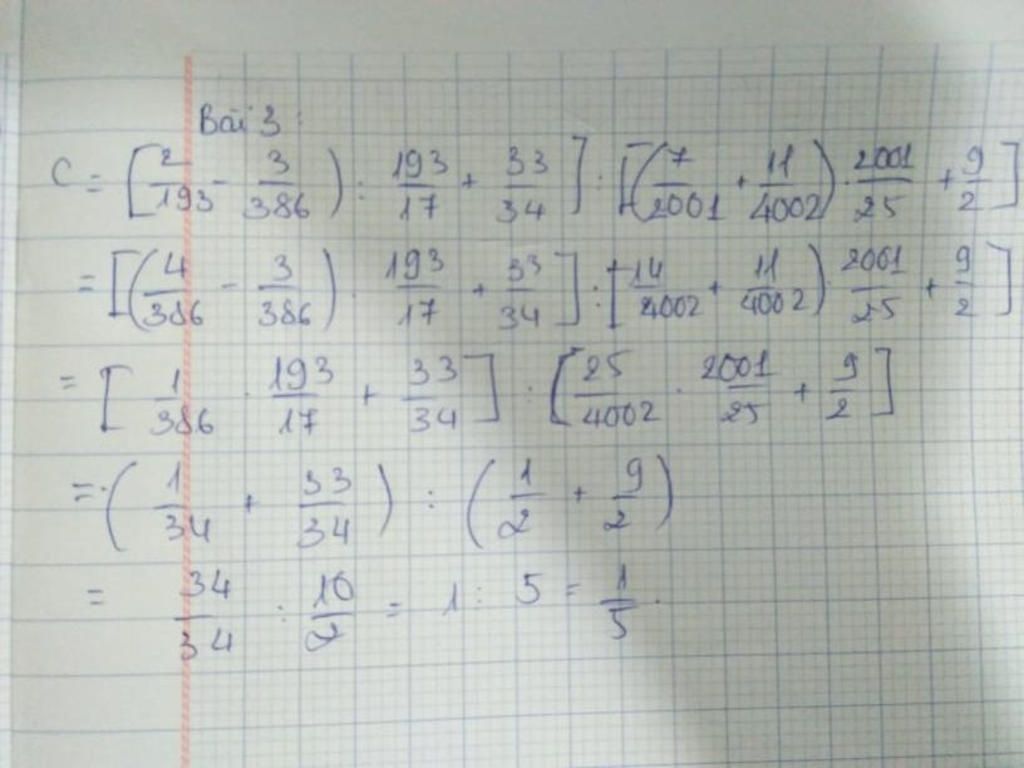 Bài 3:
C = [2/193 - 3/386) : 193/17 + 33/34] : [(7/2001 + 11/4002) . 2001/25 + 9/2]
= [(4/386 - 3/386) . 193/17 + 33/34] : [14/4002 + 11/4002) . 2001/25 + 9/2]
= [1/386 . 193/17 + 33/34] : [25/4002 . 2001/25 + 9/2]
= (1/34 + 33/34) : (1/2 + 9/2)
= 34/34 : 10/2 = 1 : 5 = 1/5.